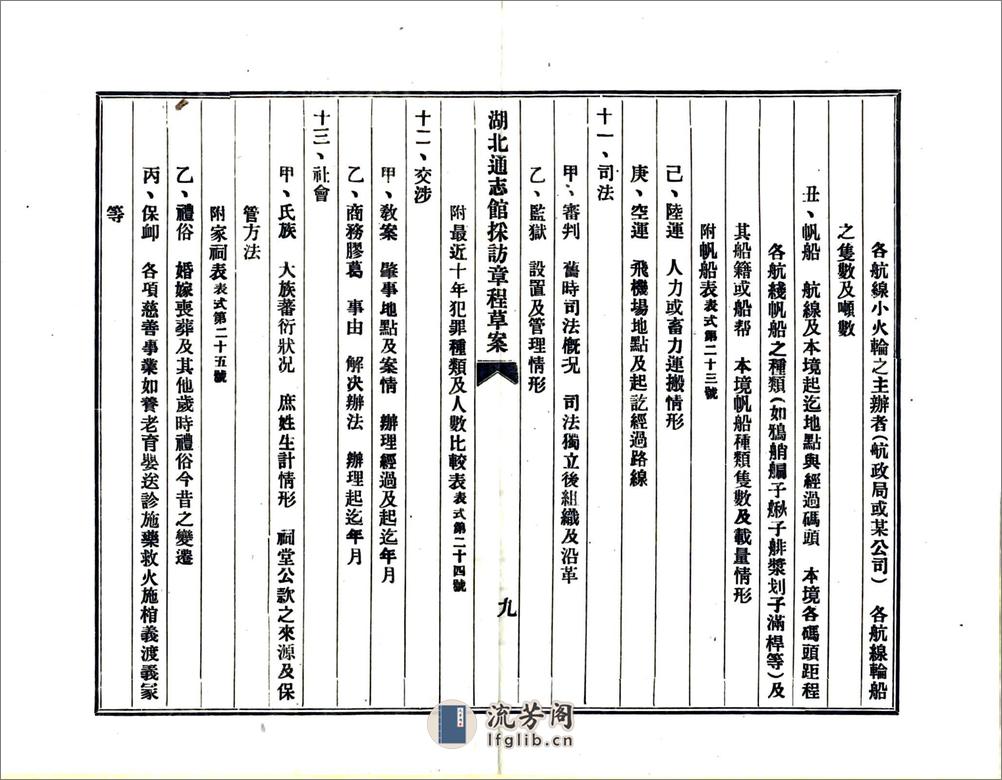 各航線小火輪之主辦者(航政局或某公司) 各航線輪船
之隻數及噸數
丑、帆船 航線及本境起迄地點與經過碼頭 本境各碼頭距程
各航綫帆船之種類(如鴉艄艑子鰍子艄槳划子滿桿等)及
其船籍或船帮 本境帆船種類隻數及載量情形
附帆船表表式第二十三號
己、陸運 人力或畜力運搬情形
庚、空運 飛機場地點及起訖經過路線
十一、司法
甲、審判 舊時司法槪况 司法獨立後組織及沿革
乙、監獄 設置及管理情形
湖北通志館採訪章程草案
九
附最近十年犯罪種類及人數比較表表式第二十四號
十二、交涉
甲、敎案 肇事地點及案情 辦理經過及起迄年月
乙、商務膠葛 事由 解決辦法 辦理起迄年月
十三、社會
甲、氏族 大族蕃衍狀况 庶姓生計情形 祠堂公欵之來源及保
管方法
附家祠表表式第二十五號
乙、禮俗 婚嫁喪葬及其他歲時禮俗今昔之變遷
丙、保卹 各項慈善事業如養老育嬰送診施藥救火施棺義渡義冢
等
流芳阁
lfglib.cn